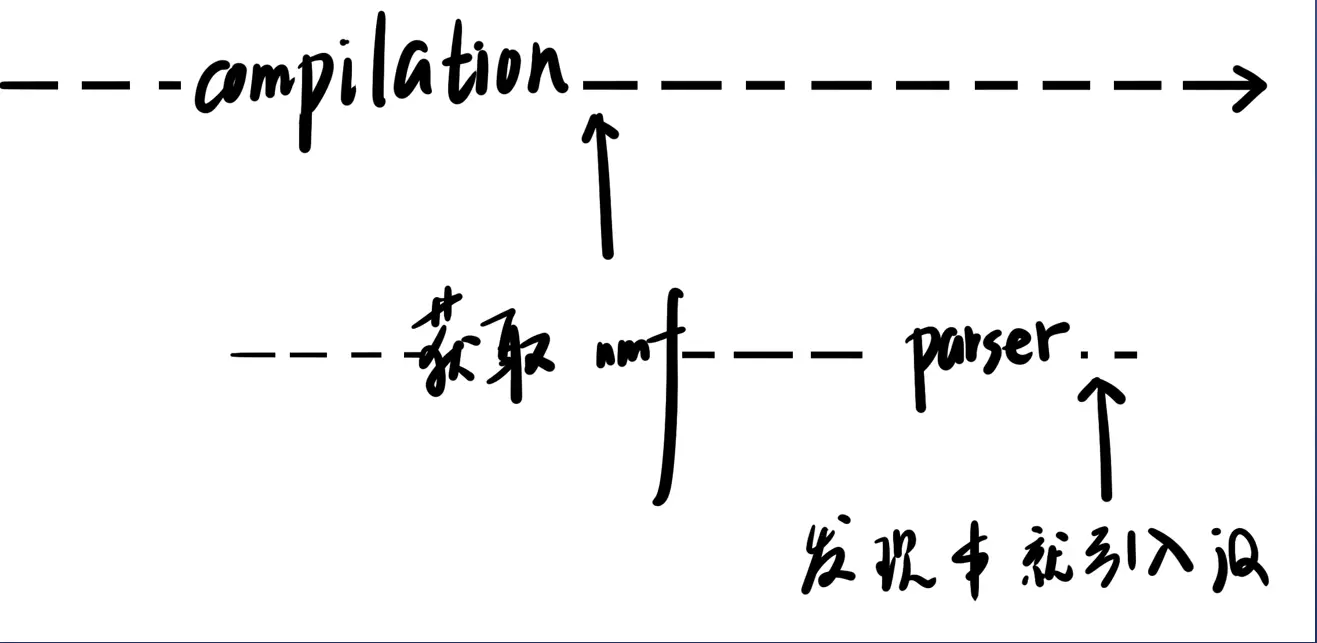 compilation
获取 nmf parser
发现 $ 就引入 jQ